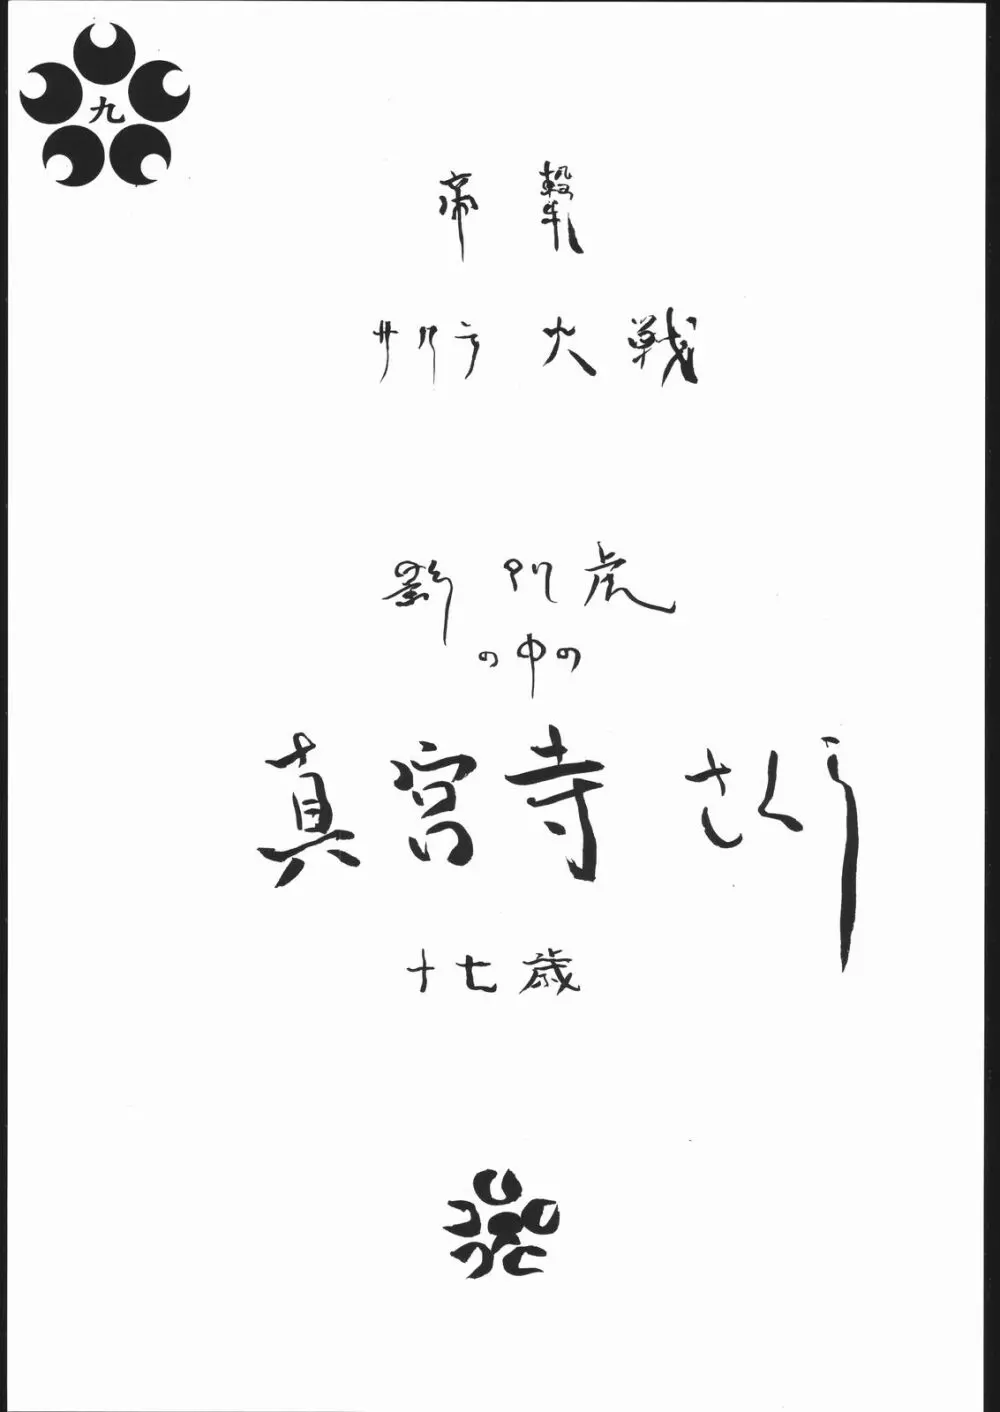 九
帝撃
サクラ大戦
虎
の中の
真宮寺 さくら
十七歳